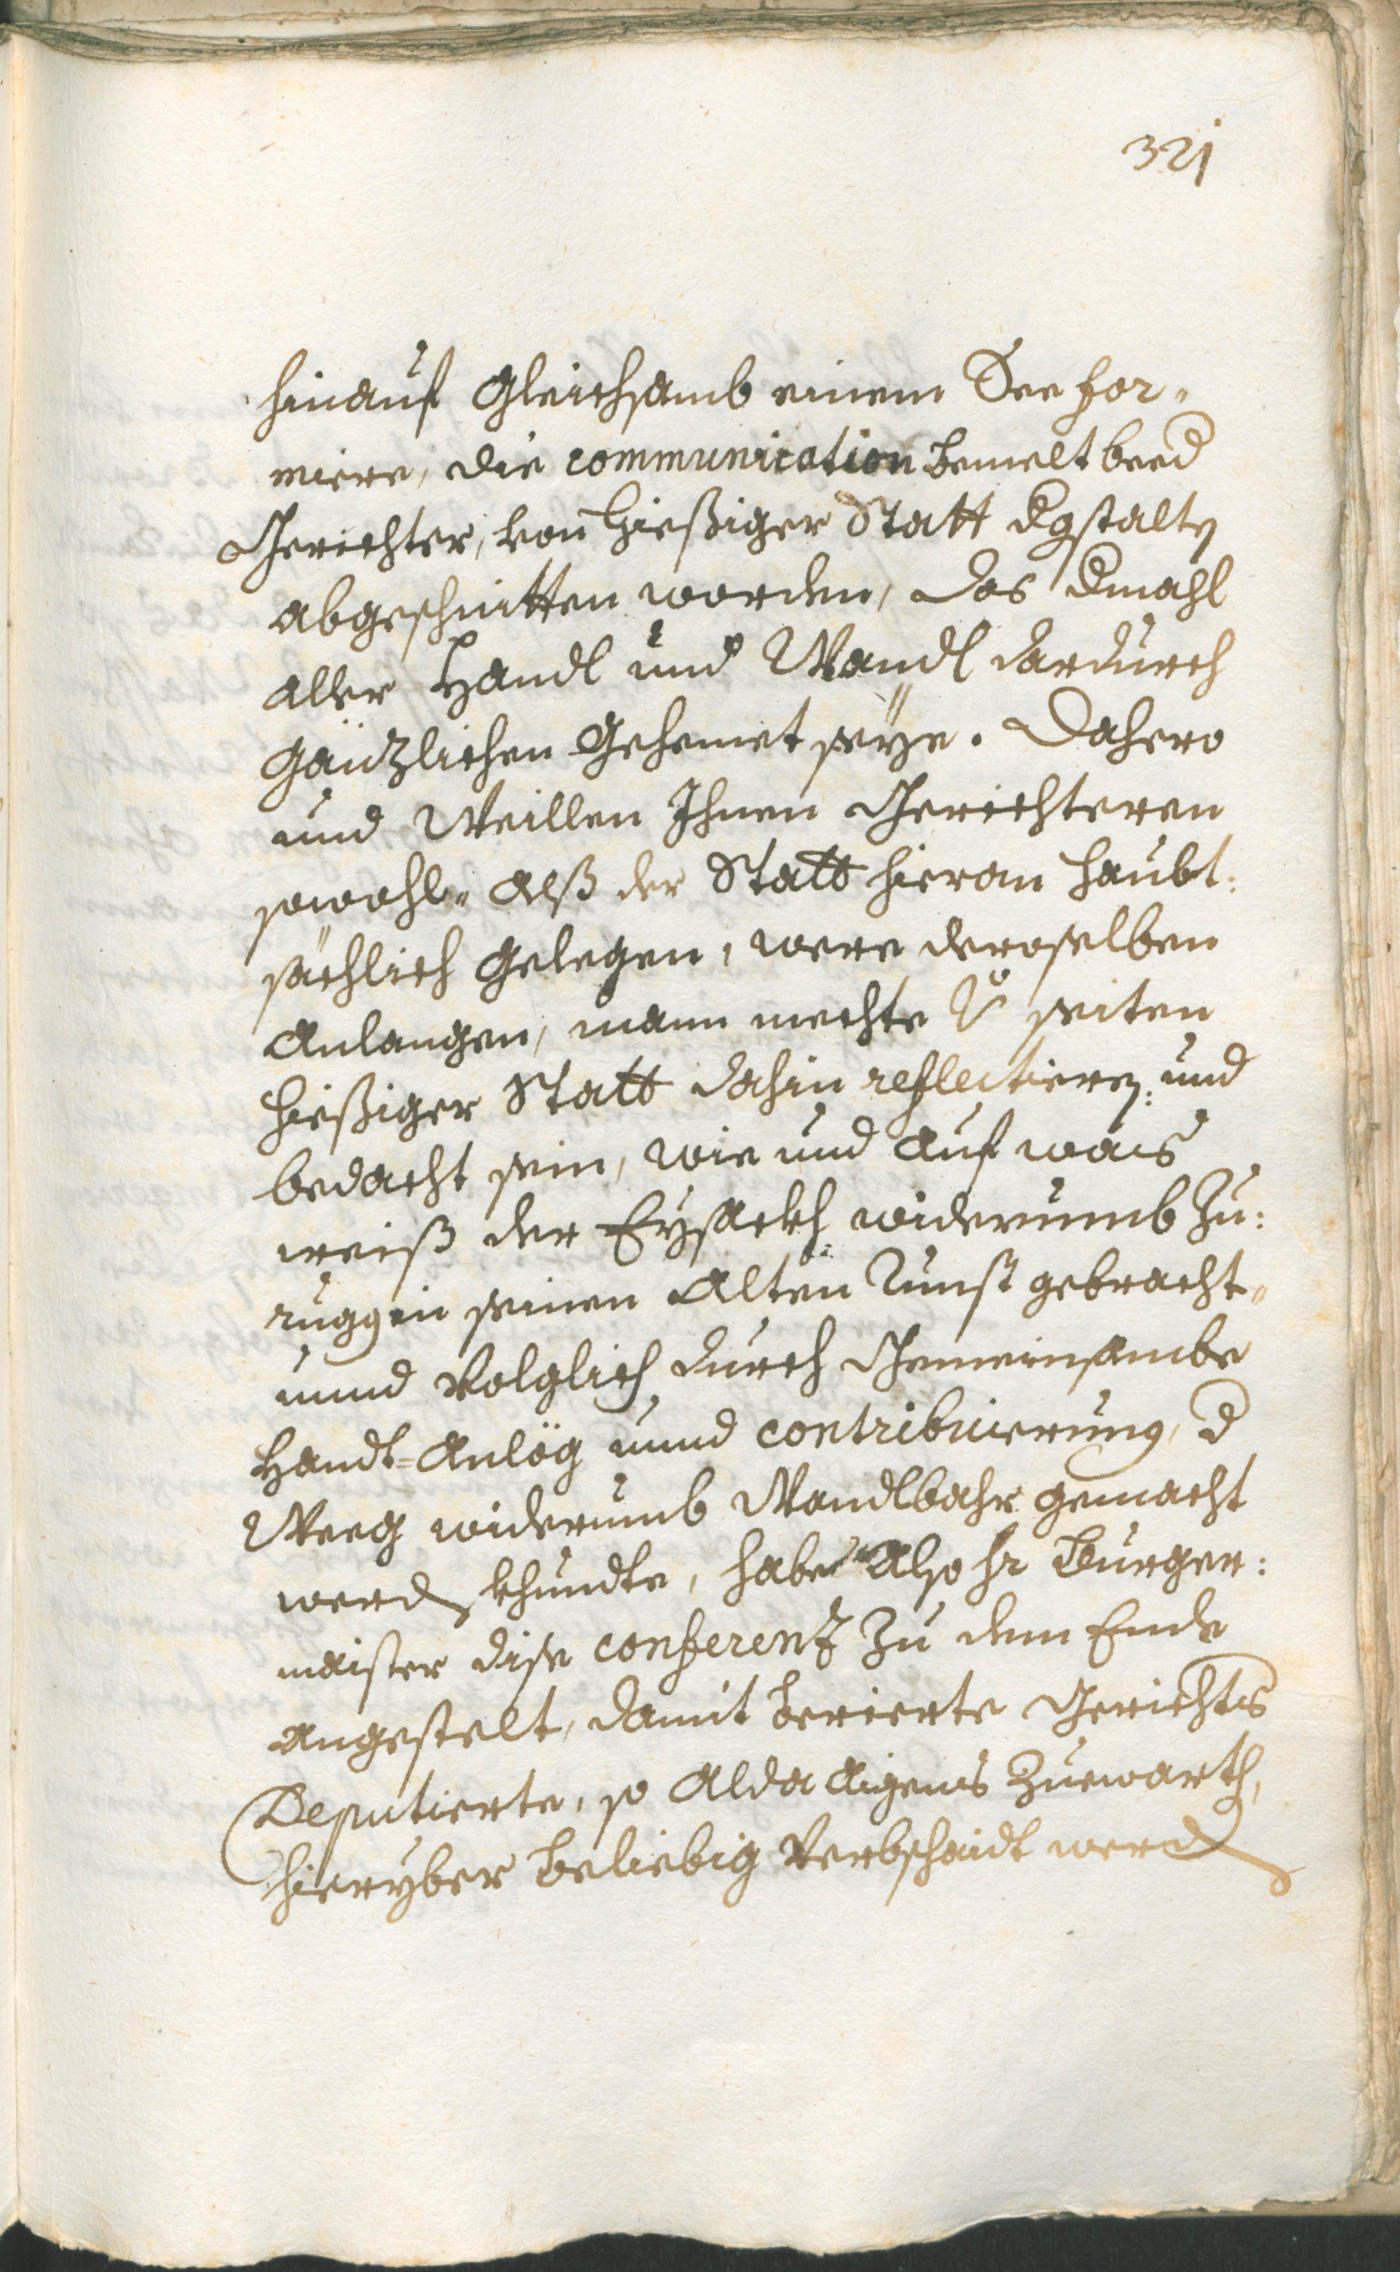 321
hinauf Gleichsamb einem See for-
miere, die communication bemelt beed
Gerichter, von hießiger Statt dgstalten
abgeschnitten worden, das dmahl
aller Handl und Wandl dardurch
gänzlichen Gehemet seÿe. Dahero
und Weillen Ihnen Gerichteren
sowohl- Alß der Statt hieran haubt:
sächlich Gelegen, were deroselben
Anlangen, mann mechte seiten
hießiger Statt dahin reflectieren: und
bedacht sein, wie und auf wais
weiß der Eysackh widerumb Zu:
ruggen seinen Alten Runst gebracht-
unnd Volglich durch Gemeinsambe
Handt-Anlög unnd contribuierung, d
Weeg widerumb Wandlbahr gemacht
werden khundte, habe Also hr Burger:
maister dise conferenz Zu dem Ende
angestelt, damit berierte Gerichts
Deputierte, so Alda Aigens Zuewarth,
hieryber beliebig Verbschaidt werden